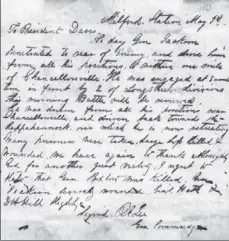 Milford Station May 3d
To President Davis
To day Gen Jackson
penetrated to rear of enemy and drove him
from all his positions
within one mile
of Chancellorsville He was engaged at same
time in front by 2 of Longstreet's divisions
this morning Battle was renewed
He was
from all his positions
Chancellorsville and driven back towards the
Rappahannock over which he is now retreating
Many prisoners were taken, large
killed &
wounded. We have again to thank Almighty
God for another great victory. I regret to
that Gen Paxton was killed, Gen
Jackson
wounded
Heth &
A P Hill slightly
Signed R E Lee
Gen Commanding